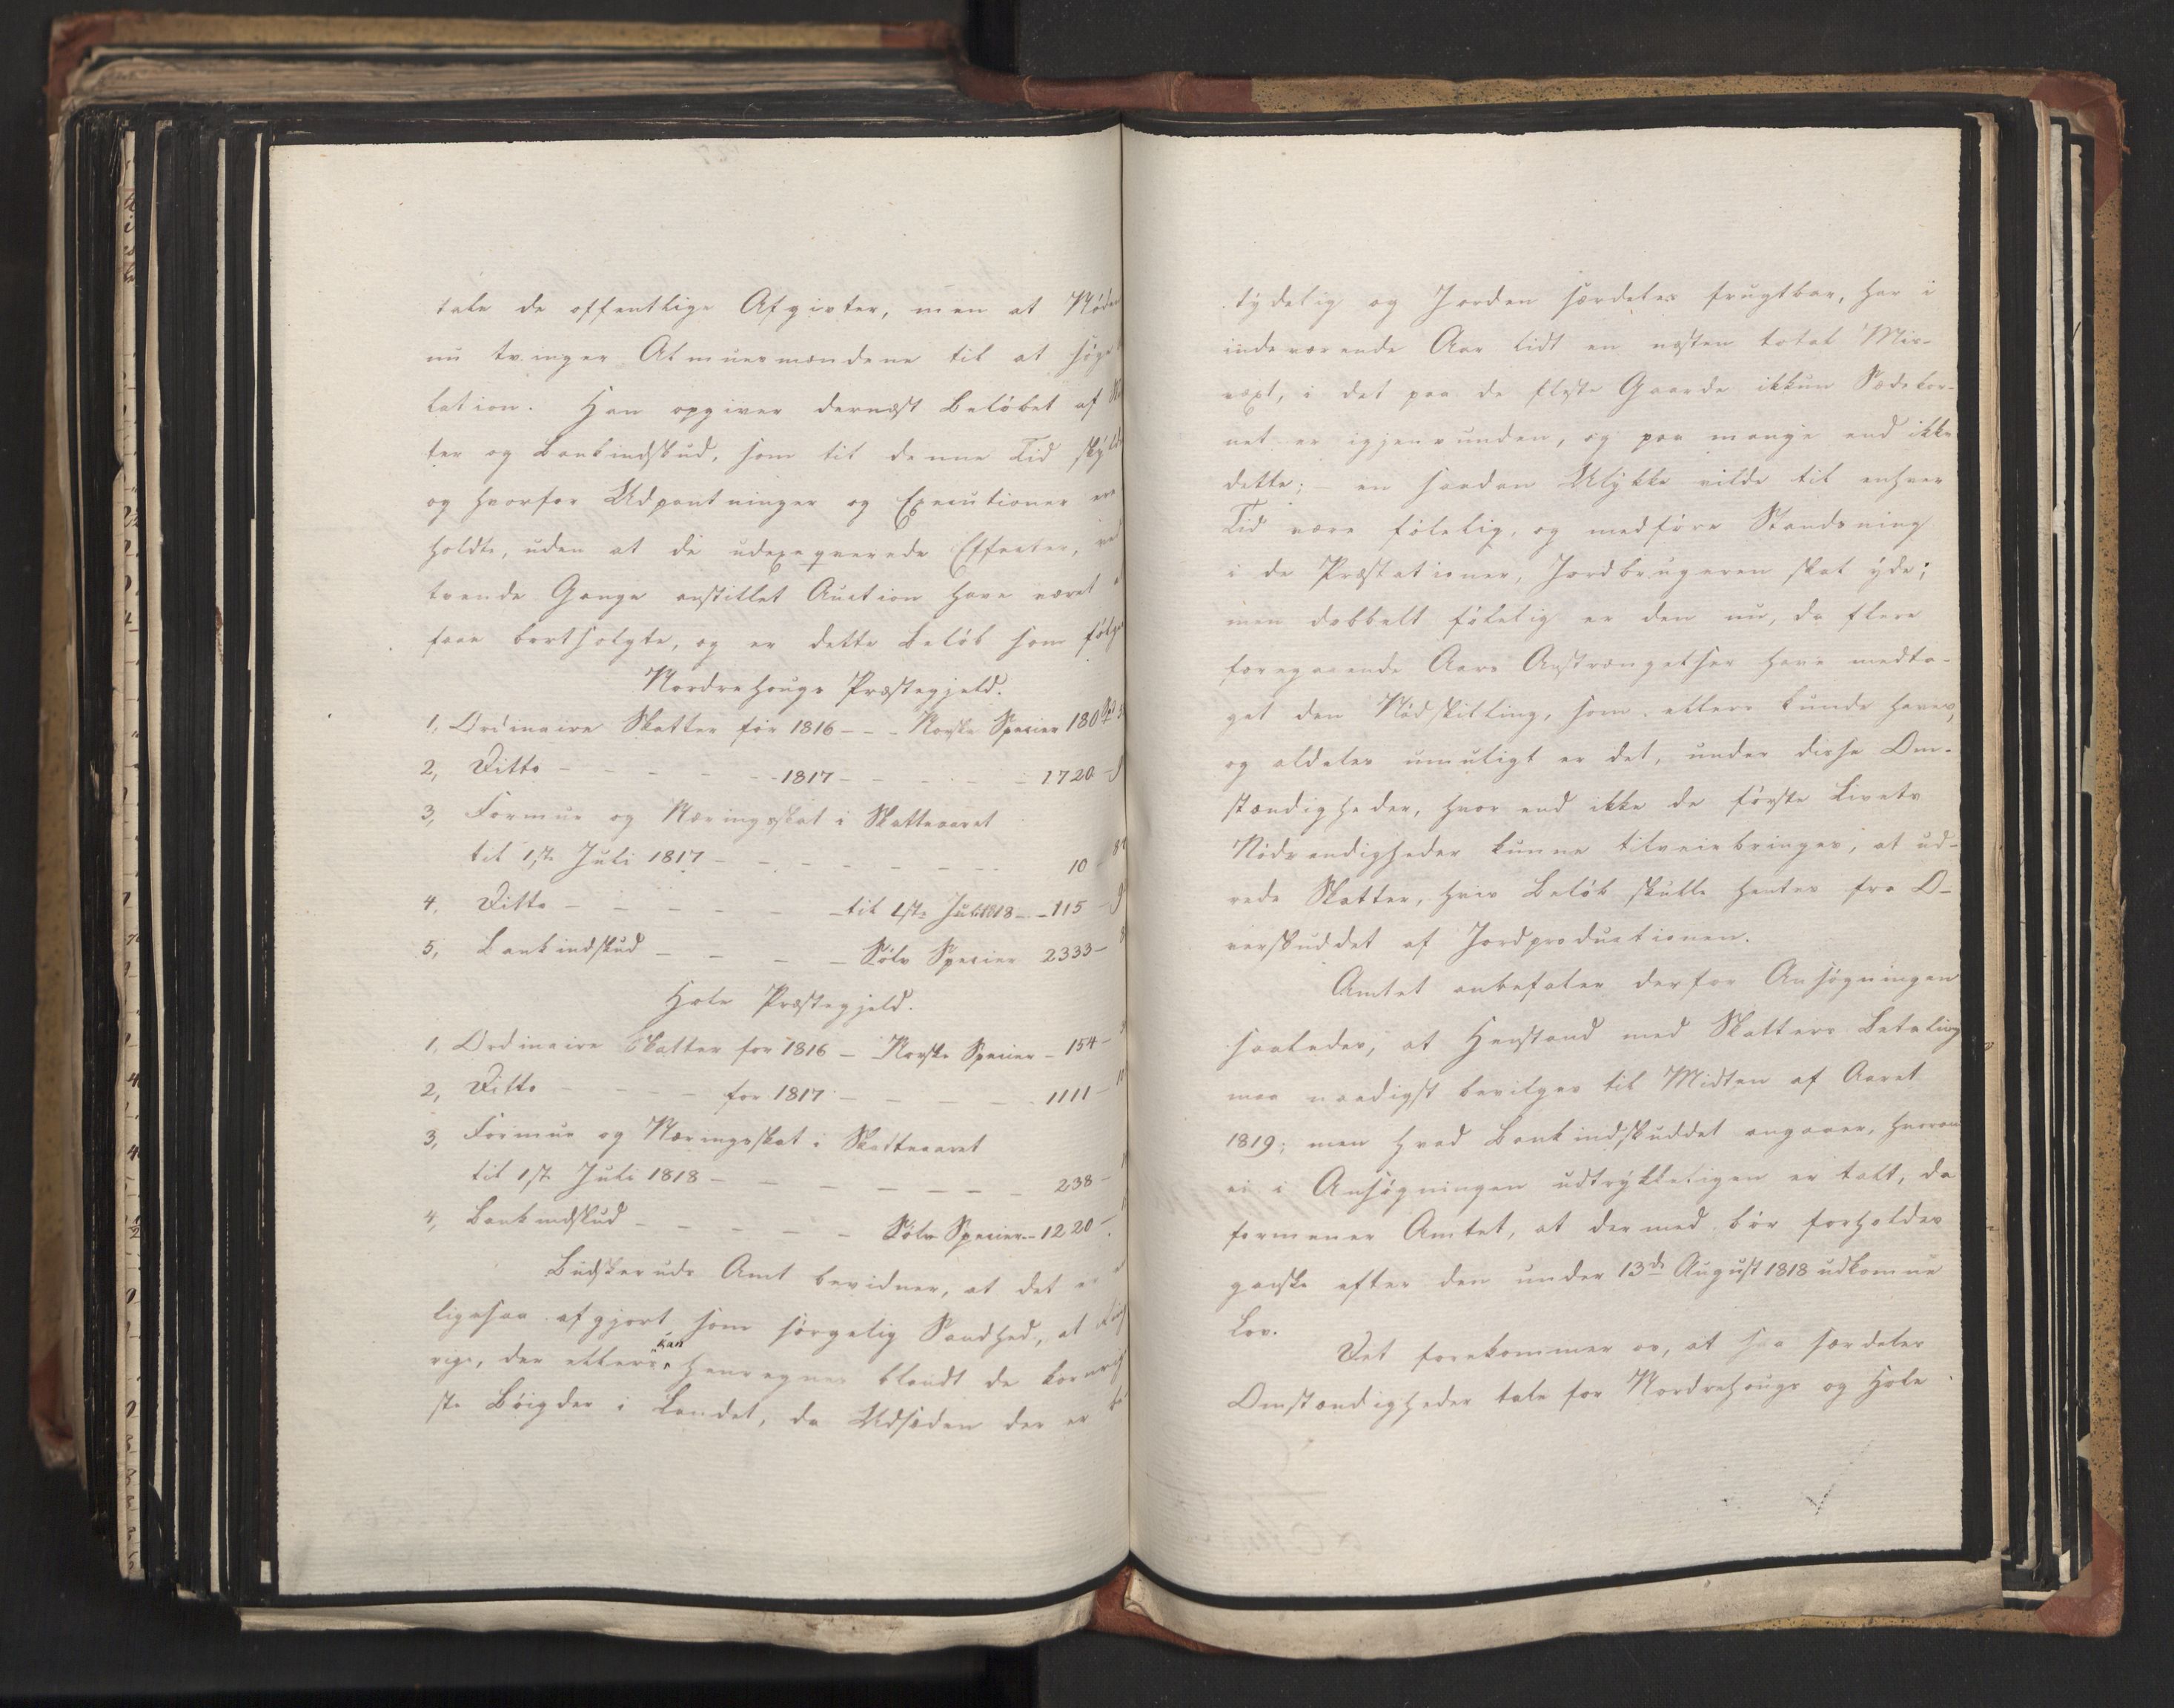 tale de offentlige Afgivter, men at Nøden
nu tvinger Almuesmændene til at søge
lation. Han opgiver dernæst Beløbet af
ter og Bankindskud, som til denne Tid skyld
og hvorfor Udpantninger og Executioner ere
holdte, uden at de udexeqverede Effecter, ved
tvende Gange anstillet Auction have været
faae bortsolgte, og er dette Beløb som følger
Nordrehougs Præstegjeld.
1, Ordinaire Skatter for 1816 - - - Norske Specier 180
2, Ditto - - - - - - 1817 - - - - - 1720 -
3, Formue og Næringsskat i Skatteaaret
til 1ste Juli 1817 - - - - - - - 10 -
4, Ditto - - - - - - til 1ste Juli 1818 - - 115 -
5, Bankindskud - - - - Sølv Specier 2333 -
Hole Præstegjeld.
1, Ordinaire Skatter for 1816 - Norske Specier - 154 -
2, Ditto - - - - for 1817 - - - - - 1111 -
3, Formue og Næringsskat i Skatteaaret
til 1ste Juli 1818 - - - - - - - 238 -
4, Bankindskud - - - - - Sølv Specier - 1220 -
Budskeruds Amt bevidner, at det er
ligesaa afgjort som sørgelig Sandhed, at Ring
rige, der ellers kan henregnes blandt de kornrig
ste Bøigder i Landet, da Udsæden der er be
tydelig og Jorden særdeles frugtbar, har i
indeværende Aar lidt en næsten total Mis-
væxt, i det paa de fleste Gaarde ikkun Sædekor-
net er igjenvunden, og paa mange end ikke
dette; - en saadan Ulykke vilde til enhver
Tid være følelig, og medføre Standsning
i de Præstationer, Jordbrugeren skal yde;
men dobbelt følelig er den nu, da flere
foregaaende Aars Anstrængelser have medta-
get den Nødskilling, som ellers kunde haves,
og aldeles umuligt er det, under disse Om-
stændigheder, hvor end ikke de første Livets
Nødvendigheder kunne tilveiebringes, at ud-
rede Skatter, hvis Beløb skulle hentes fra O-
verskuddet af Jordproductionen.
Amtet anbefaler derfor Ansøgningen
saaledes, at Henstand med Skatters Betaling
maa naadigst bevilges til Midten af Aaret
1819; men hvad Bankindskuddet angaaer, hvorom
ei i Ansøgningen udtrykkeligen er talt, da
formener Amtet, at dermed bør forholdes
ganske efter den under 13de August 1818 udkomne
Lov.
Det forekommer os, at saa særdeles
Omstændigheder tale for Nordrehougs og Hole